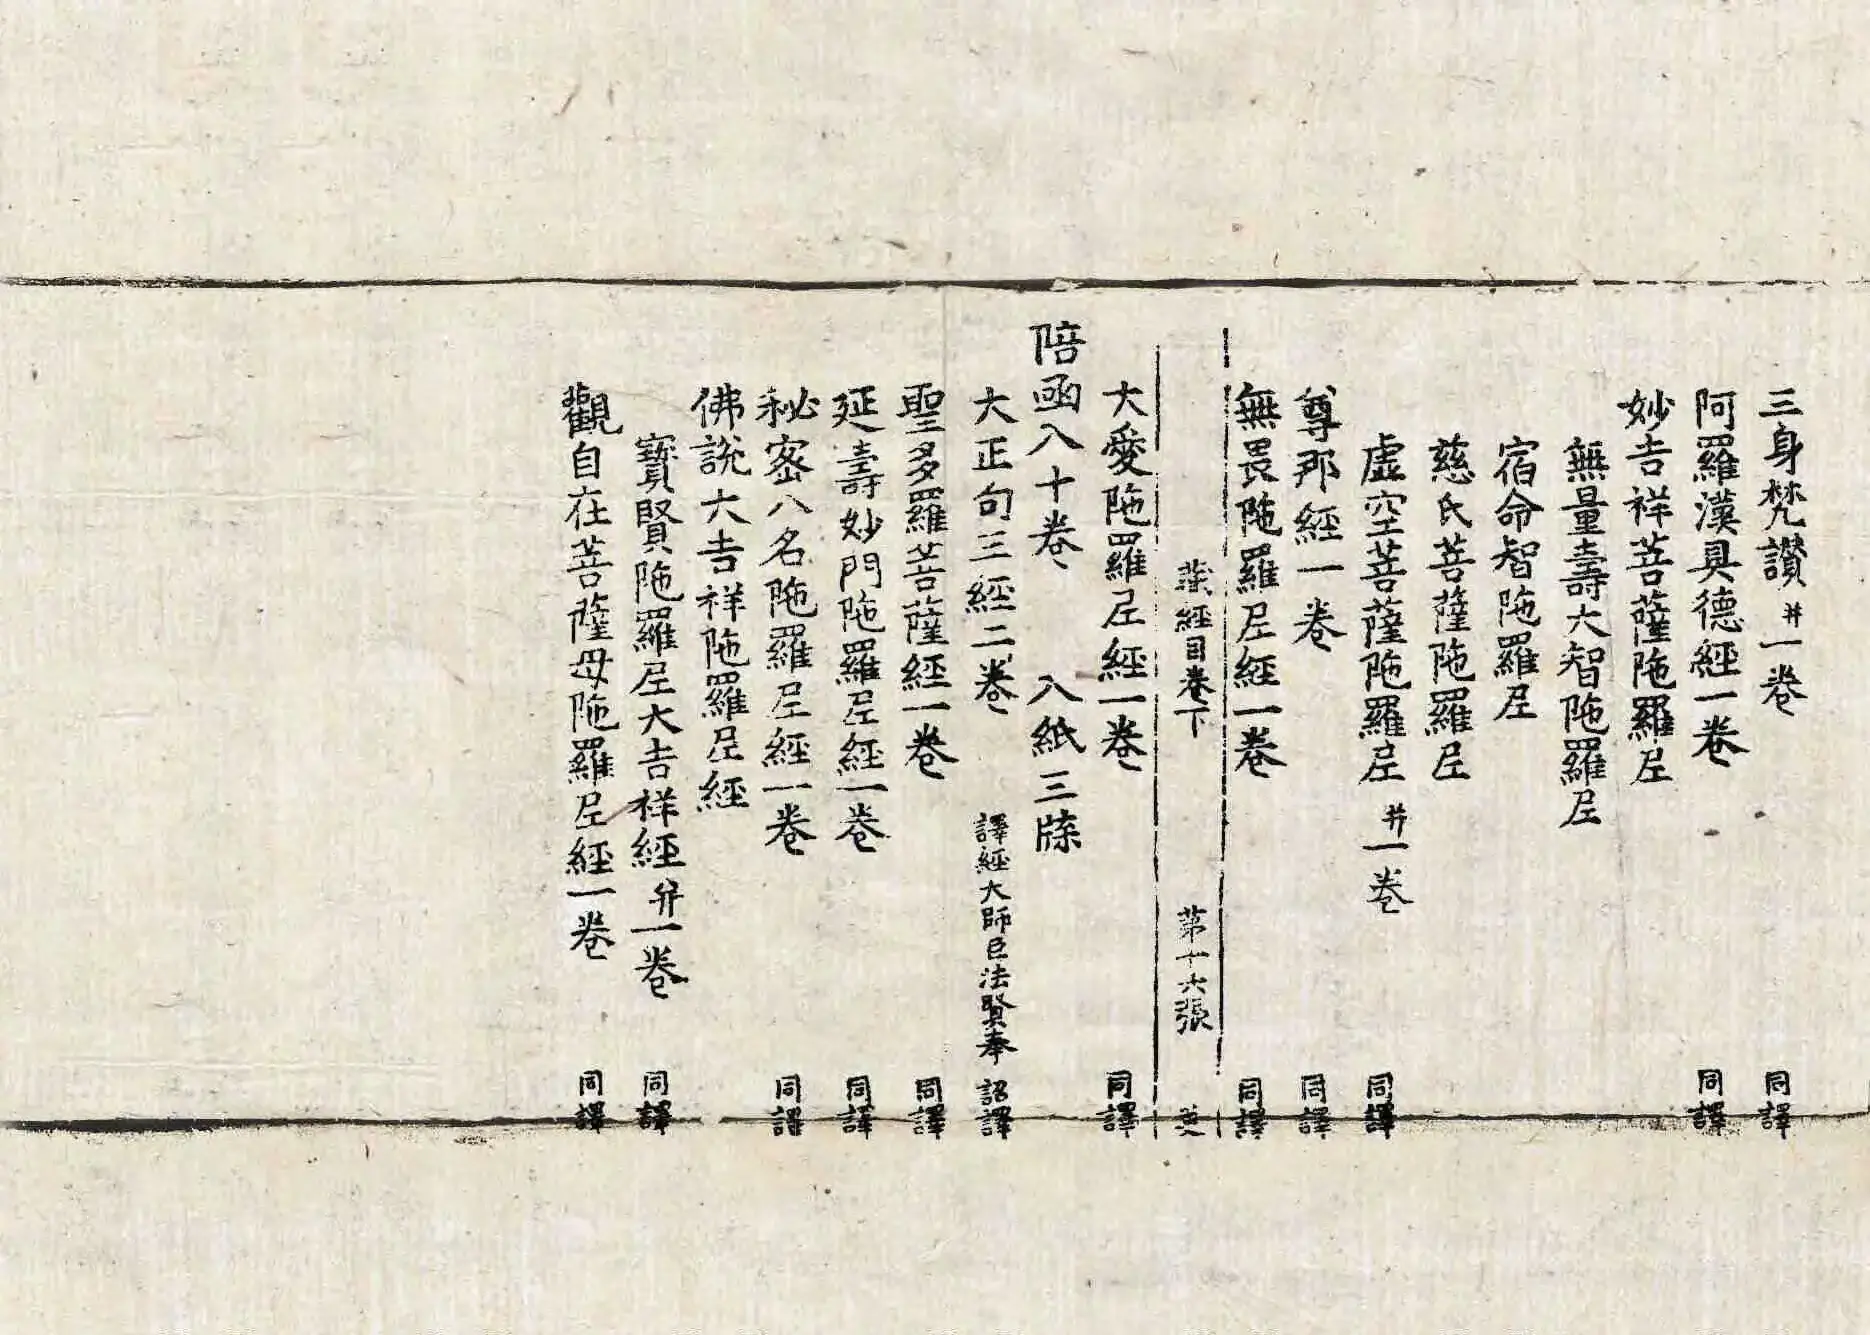 三身梵讃并一卷 同譯
阿羅漢具德經一卷 同譯
妙吉祥菩薩陁羅尼
無量壽大智陁羅尼
宿命智陁羅尼
慈氏菩薩陁羅尼
虛空菩薩陁羅尼并一卷 同譯
尊那經一卷 同譯
無畏陁羅尼經一卷 同譯
經目卷下 第十六張
大愛陁羅尼經一卷 同譯
陪函八十卷 八紙三牒
大正句三經二卷 譯經大師臣法賢奉 詔譯
聖多羅菩薩經一卷 同譯
延壽妙門陁羅尼經一卷 同譯
秘密八名陁羅尼經一卷 同譯
佛說大吉祥陁羅尼經
寶賢陁羅尼大吉祥經并一卷 同譯
觀自在菩薩母陁羅尼經一卷 同譯